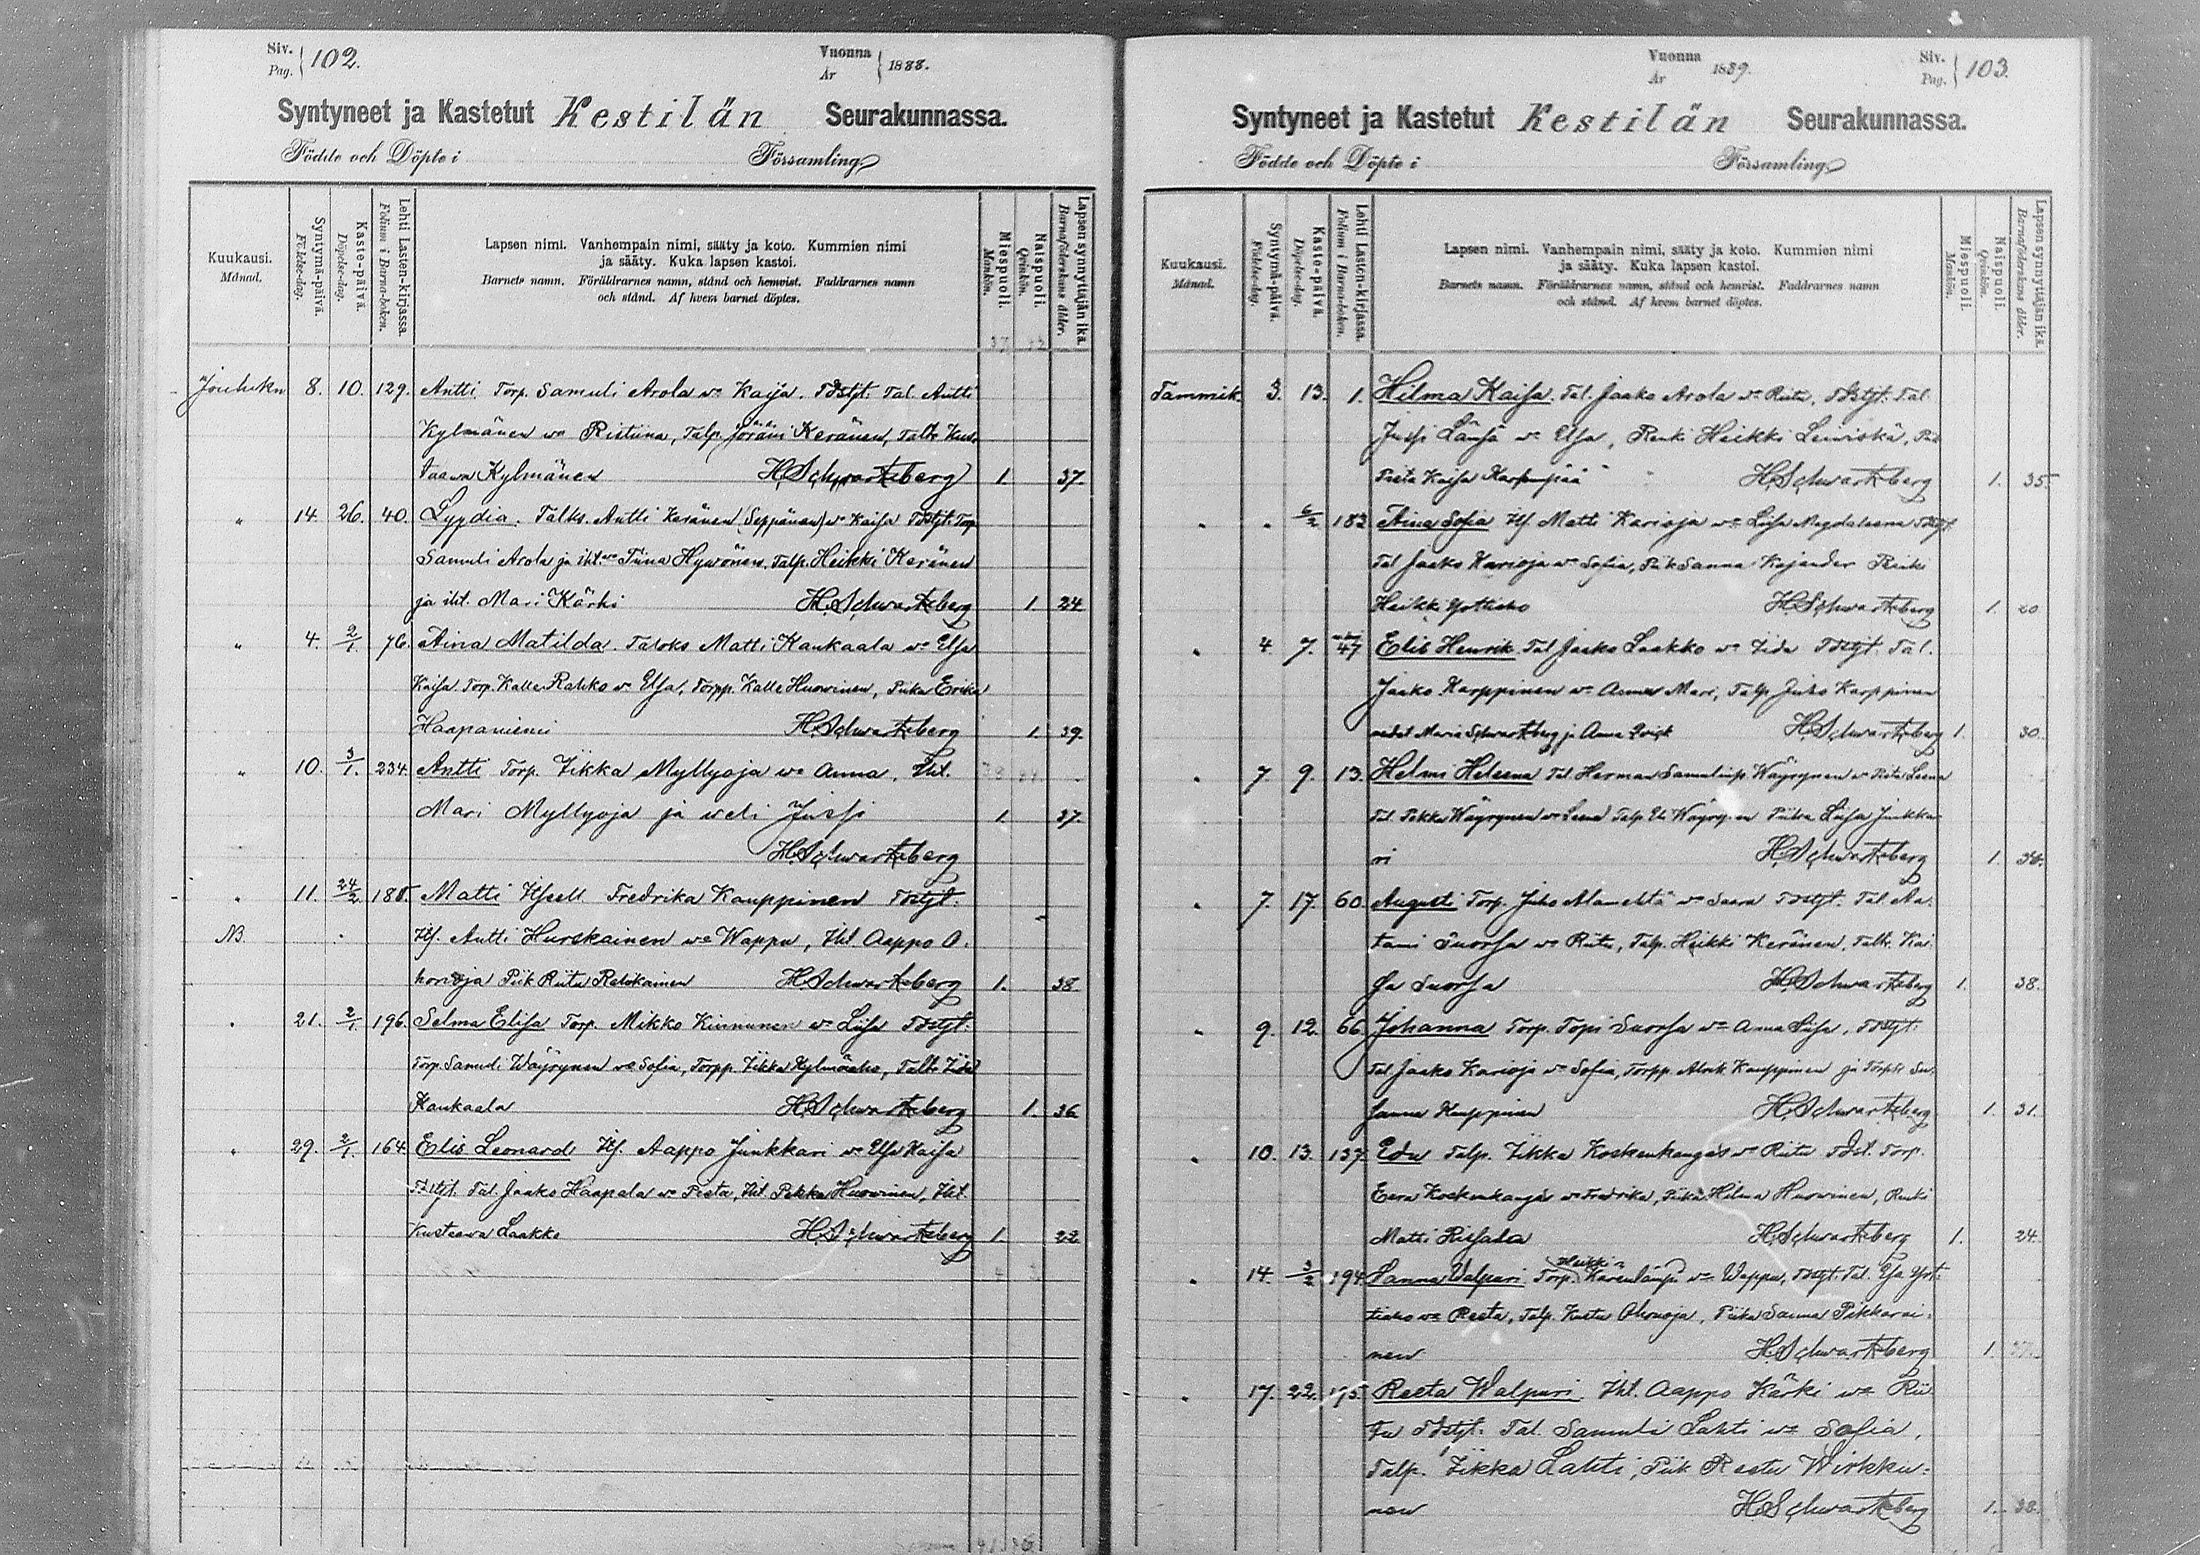 Siv. Pag. 102.
Vuonna År 1888.
Syntyneet ja Kastetut Kestilän Seurakunnassa.
Födde och Döpte i Församling
Kuukausi. Månad.
Syntymä-päivä. Födelse-dag.
Kaste-päivä. Döpelse-dag.
Lehti Lasten-kirjassa. Folium i Barna-boken.
Lapsen nimi. Vanhempain nimi, sääty ja koto. Kummien nimi
ja sääty. Kuka lapsen kastoi.
Barnets namn. Föräldrarnes namn, stånd och hemvist. Faddrarnes namn
och stånd. Af hvem barnet döptes.
Miespuoli. Mankön.
Naispuoli. Qvinkön.
Lapsen synnyttäjän ikä. Barnaföderskans ålder.
Jouluku 8. 10. 129. Antti Torp. Samuli Arola wo Kaisa. Tdstjt. Tal. Antti
Kylmänen wo Ristiina, Talp. Keränen, Taltr. Kus-
taawa Kylmänen HSchwartzberg 1. 37.
" 14. 26. 40. Lyydia. Talks. Antti Keränen (Seppänen) wo Kaisa Tdstjt. Torp.
Samuli Arola ja iht. wo Tiina Hywönen. Talp. Heikki Keränen
ja iht. Mari Kärki HSchwartzberg 1. 24
" 4. 2/1. 76. Aina Matilda. Taloks Matti Kankaala wo Elsa
Kaisa. Torp. Kalle Rahko wo Elsa, Torpp. Kalle Huowinen, Piika Erika
Haapaniemi HSchwartzberg 1. 39.
" 10. 3/1. 234. Antti Torp. Iikka Myllyoja wo Anna, Iht.
Mari Myllyoja ja weli Jussi 1. 37.
HSchwartzberg
" 11. 24/2. 185. Matti Itsell Fredrika Kauppinen Tdstjt.
NB. Its. Antti Hurskainen wo Wappu, Iht Aappo A-
honoja Piik Riitu Ratikainen HSchwartzberg 1. 38
" 21. 2/1. 196. Selma Elisa Torp. Mikko Kinnunen wo Liisa Tdstjt.
Torp. Samuli Wäyrynen wo Sofia, Torpp. Iikka Kylmäaho, Taltr. Iida
Kankaala HSchwartzberg 1. 36
" 29. 2/1. 164. Elis Leonard Its. Aappo Junkkari wo Elsa Kaisa
Tdstjt. Tal. Jaako Haapala wo Reeta, Iht. Pekka Huowinen, Iht.
Kustaawa Laakko HSchwartzberg 1. 22
Siv. Pag. 103.
Vuonna År 1889.
Syntyneet ja Kastetut Kestilän Seurakunnassa.
Födde och Döpte i Församling
Kuukausi. Månad.
Syntymä-päivä. Födelse-dag.
Kaste-päivä. Döpelse-dag.
Lehti Lasten-kirjassa. Folium i Barna-boken.
Lapsen nimi. Vanhempain nimi, sääty ja koto. Kummien nimi
ja sääty. Kuka lapsen kastoi.
Barnets namn. Föräldrarnes namn, stånd och hemvist. Faddrarnes namn
och stånd. Af hvem barnet döptes.
Miespuoli. Mankön.
Naispuoli. Qvinkön.
Lapsen synnyttäjän ikä. Barnaföderskans ålder.
Tammik. 3. 13. 1. Hilma Kaisa. Tal. Jaako Arola wo Riitu, Tdstjt. Tal.
Jussi Länsä wo Elsa, Renki Heikki Leiwiskä,
Kaisa HSchwartzberg 1. 35.
" " 6/2 183 Aina Sofia Its. Matti Karioja wo Liisa Magdaleena Tdstjt
Tal Jaako Karioja wo Sofia, Piik Sanna Kajander Renki
Heikki HSchwartzberg 1. 20
" 4. 7. 47 Elis Henrik Tal Jaako Laakko wo Iida Tdstjt. Tal.
Jaako Karppinen wo Anna Mari, Talp. Juho Karppinen
Maria Schwartzberg ja Anna HSchwartzberg 1. 30.
" 7. 9. 13. Helmi Heleena Tal. Herman Wäyrynen wo Leena
Tal. Pekka Wäyrynen wo Leena Talp. Wäyrynen Piika Liisa Junkka-
ri HSchwartzberg 1.
" 7. 17. 60. Augusti Torp. Juho Alamehtä wo Saara Tdstjt. Tal. Aa-
tami Suorsa wo Riitu, Talp. Heikki Keränen, Taltr. Kai-
sa Suorsa HSchwartzberg 1. 38.
" 9. 12. 66 Johanna Torp. Topi Suorsa wo Anna Liisa, Tdstjt.
Tal Jaako Karioja wo Sofia, Torpp. Kauppinen ja Torptr. Su-
sanna Kauppinen HSchwartzberg 1. 31.
" 10. 13. 137. Edu Talp. Iikka Koskenkangas wo Riitu Tdst. Torp.
Eera Koskenkangas wo Fredrika, Piika Hilma Huowinen, Renki
Matti HSchwartzberg 1. 24.
" 14. 3/2 194. Sanna Walpuri Torp. Heikki Kärenlämpi wo Wappu, Tdstjt. Tal.
wo Reeta, Talp. Kustu Ahonoja, Piika Sanna Pikkarai-
nen HSchwartzberg 1.
" 17. 22. 195. Reeta Walpuri Iht. Aappo Kärki wo Rii-
tu Tdstjt. Tal. Samuli Lahti wo Sofia,
Talp. Iikka Lahti, Piik Reetu Wirkku-
nen HSchwartzberg 1. 38.